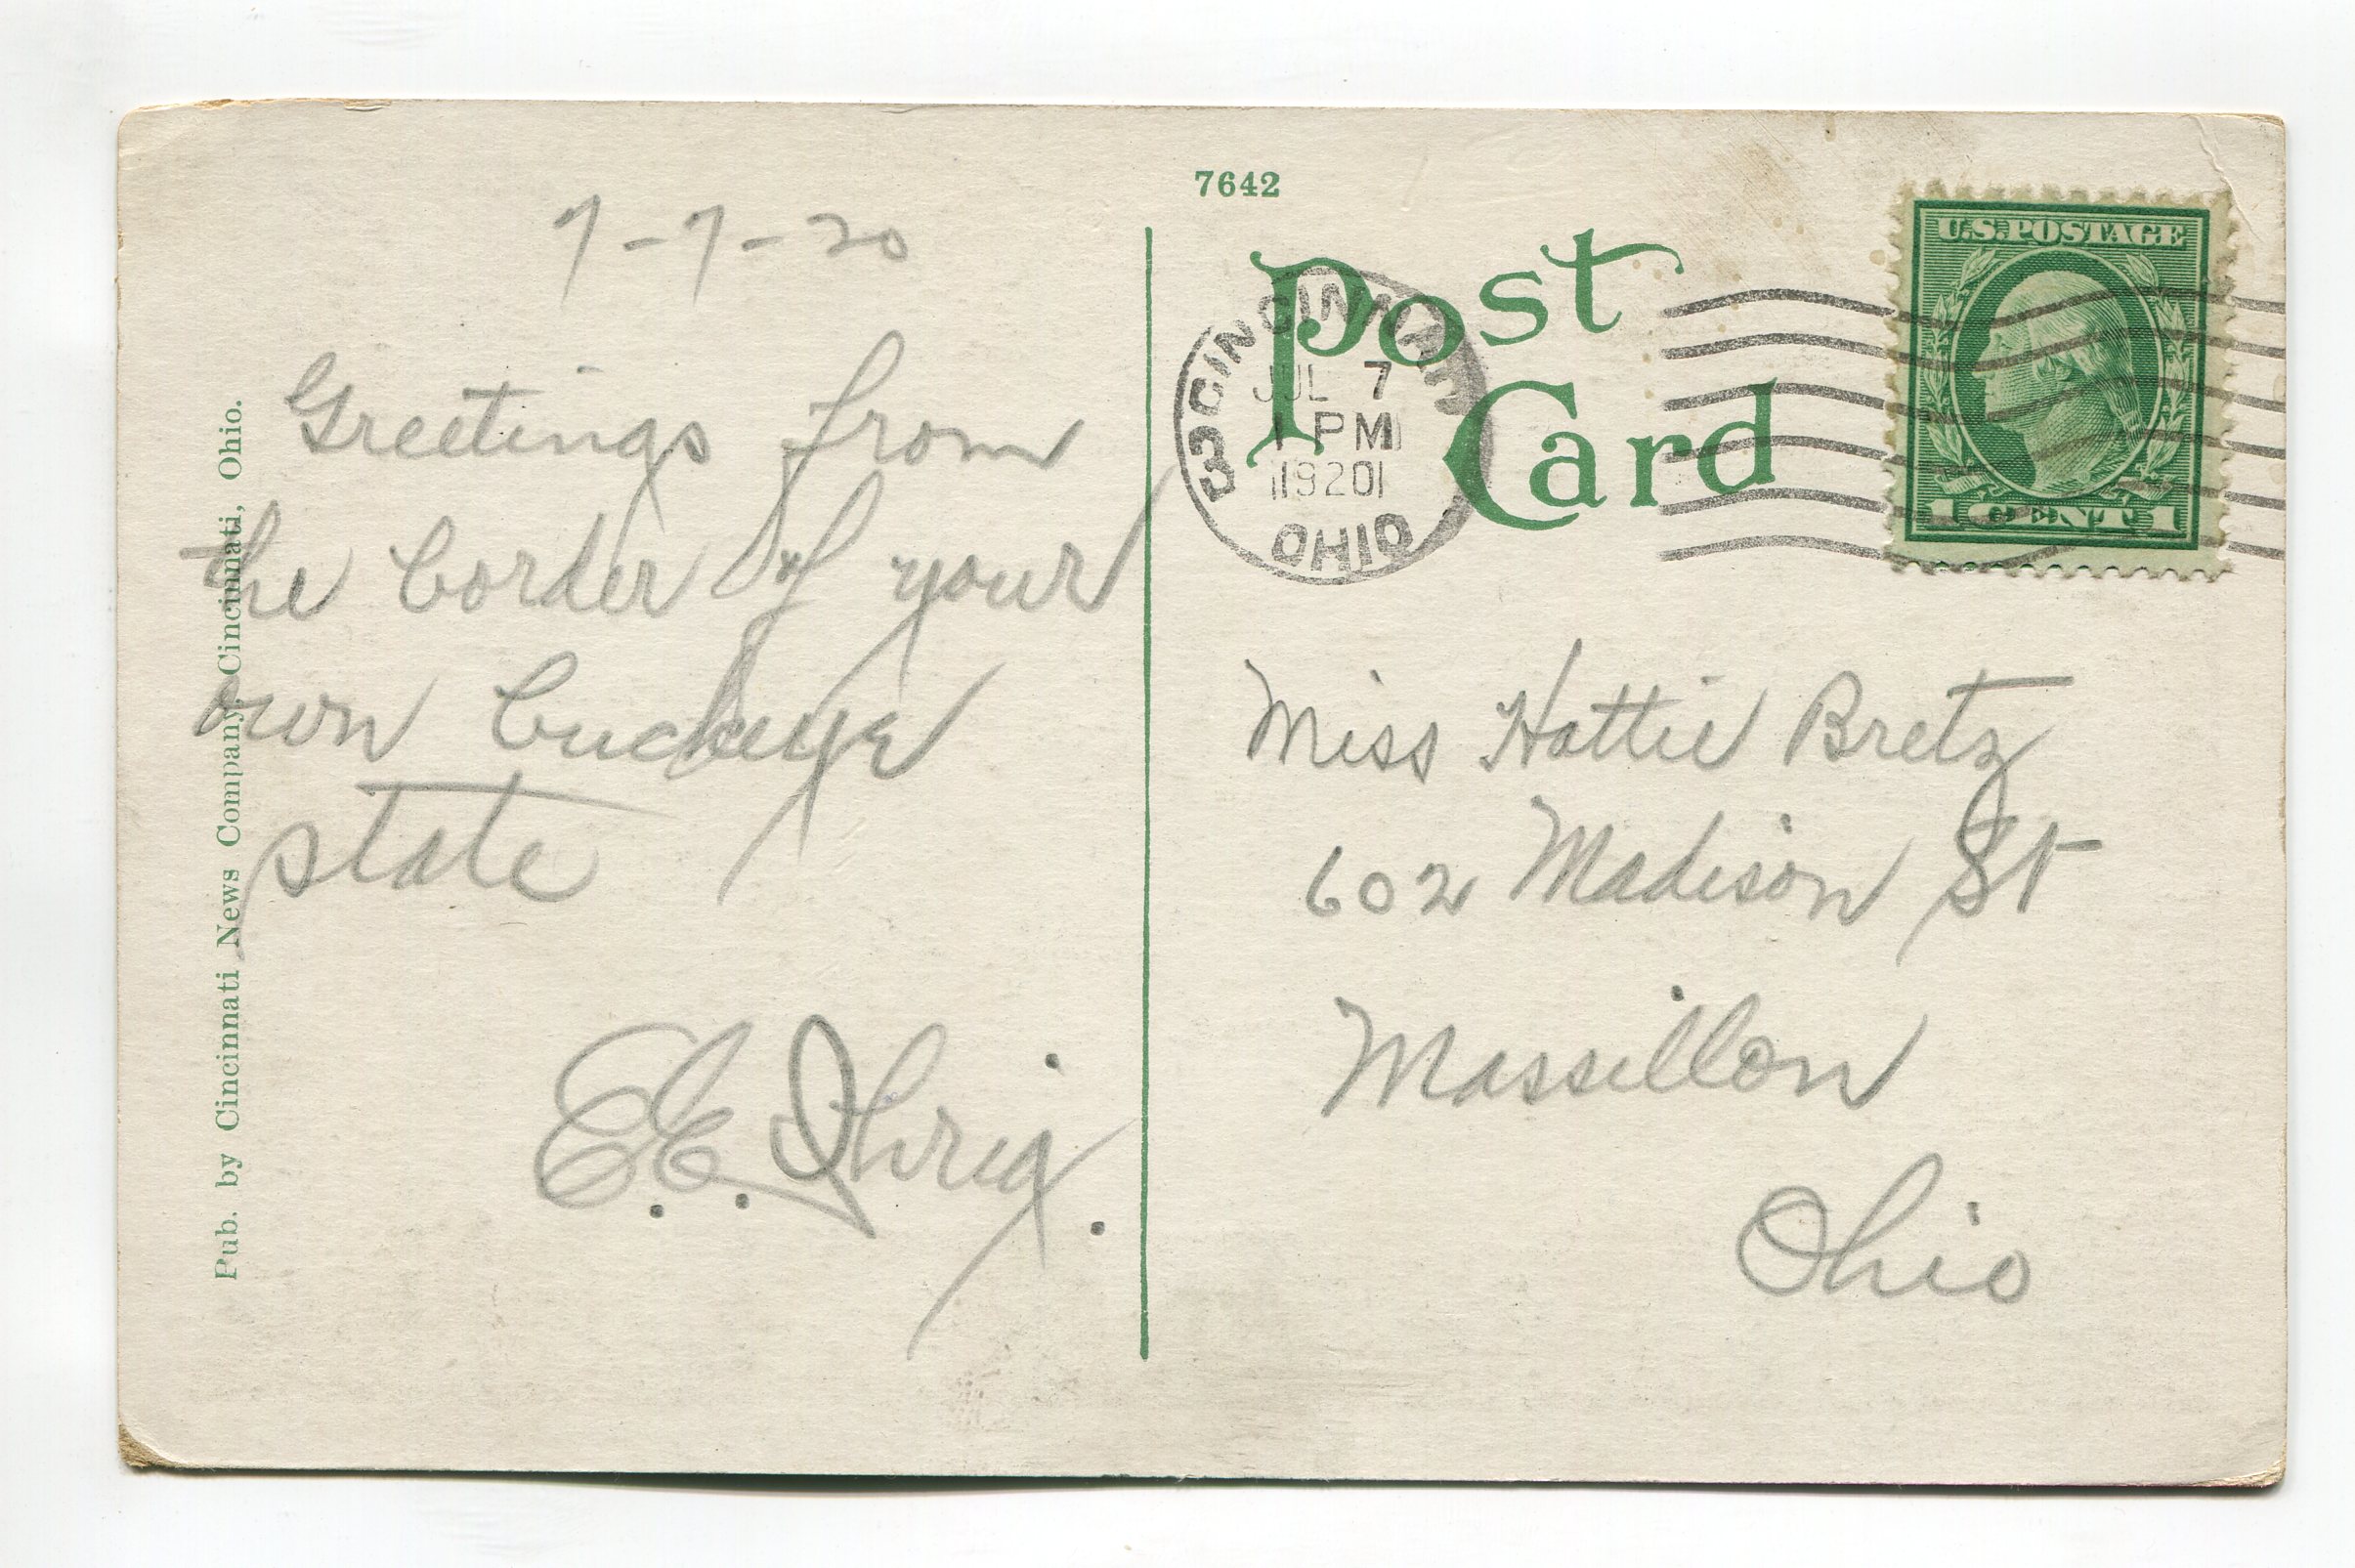 7-7-20
Greetings from
the border of your
own buckeye
state
E. E. Ihrig.
Pub. by Cincinnati News Company, Cincinnati, Ohio.
7642
Post
Card
CINCINNATI
JUL 7
1 PM
1920
OHIO
U.S. POSTAGE
1 CENT 1
Miss Hattie Bretz
602 Madison St
Massillon
Ohio